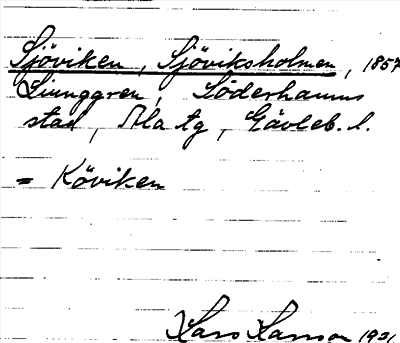 Sjöviken, Sjöviksholmen, 1857
Ljunggren, Söderhamns
stad, Ala tg, Gävleb. l.
= Köviken
Lars Larsson 1931